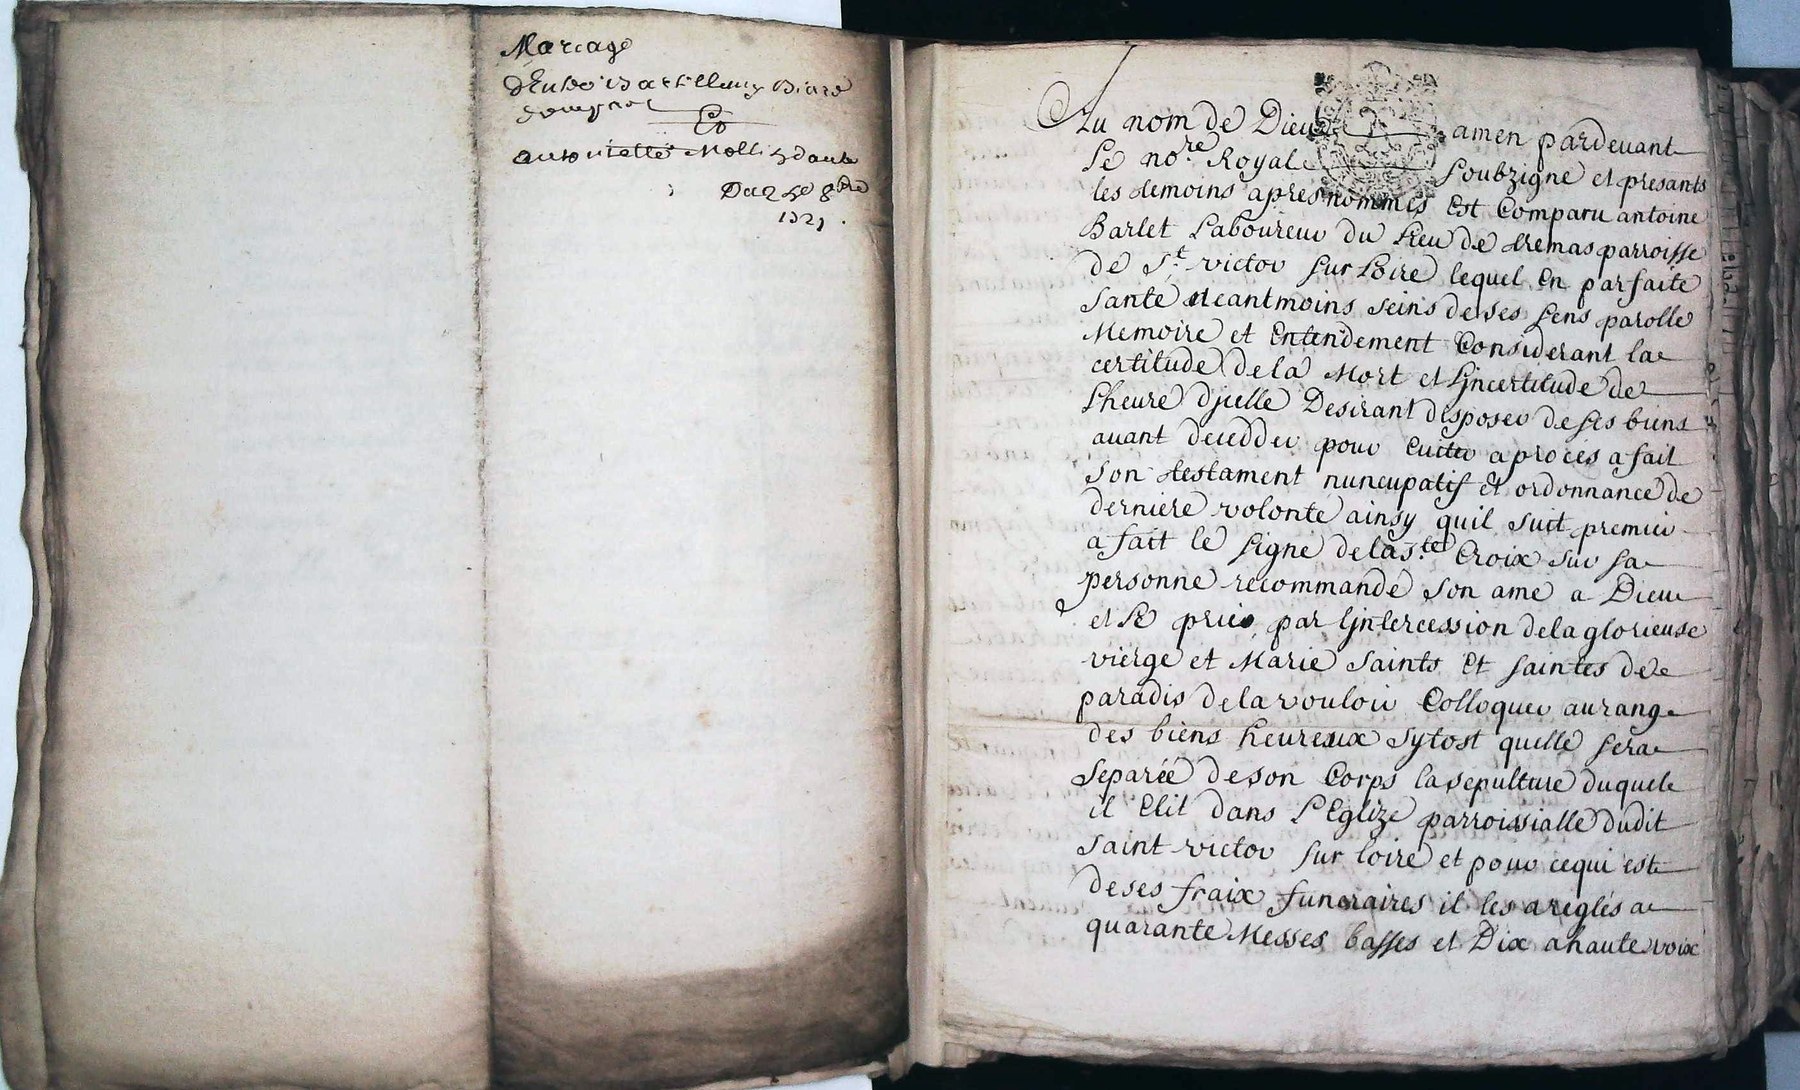 Mariage
Et
antoinette
Du 24e 8bre
1721.
Au nom de Dieu amen pardeuant
Le nore Royal Soubzigné et presants
les temoins apres nommés Est Comparu antoine
Barlet Laboureur du Lieu de tremas parroisse
de St victor sur Loire lequel En parfaite
santé neantmoins seins de ses sens parolle
Memoire et Entendement Considerant la
certitude de la Mort et Lincertitude de
Lheure Djcelle Desirant disposer de ses biens
auant deceder pour Euiter a procés a fait
son testament nuncupatif et ordonnance de
derniere volonté ainsy quil suit premier
a fait le signe de la ste Croix sur sa
personne recommandé son ame a Dieu
et Le prie par Ljntercession de la glorieuse
vierge et Marie saints et saintes de
paradis de la vouloir Colloquer au rang
des biens heureux sytost quelle sera
separée de son Corps la sepulture duquel
il Elit dans LEglize parroissialle dudit
saint victor sur loire et pour ce qui est
de ses fraix funeraires il les a reglés a
quarante Messes basses et Dix a haute voix